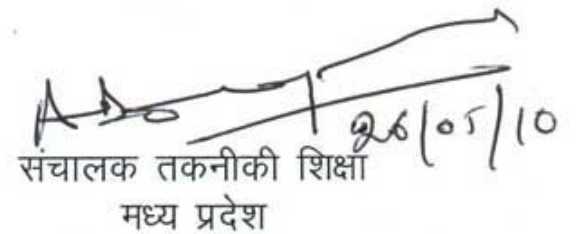 26/05/10
संचालक तकनीकी शिक्षा
मध्य प्रदेश